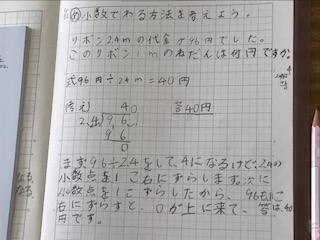 小数でわる方法を考えよう。
リボン2.4mの代金が96円でした。
このリボン1mのねだんは何円ですか。
式96円÷2.4m=40円
(考え)
40
答40円
2.4)9,6,
9 6
0
まず96÷2.4をして、4になるけど、2.4の
小数点を1こ右にずらします。次に
小数点を1こずらしたから、96も1こ
右にずらすと、0が上に来て、答は、40
円です。